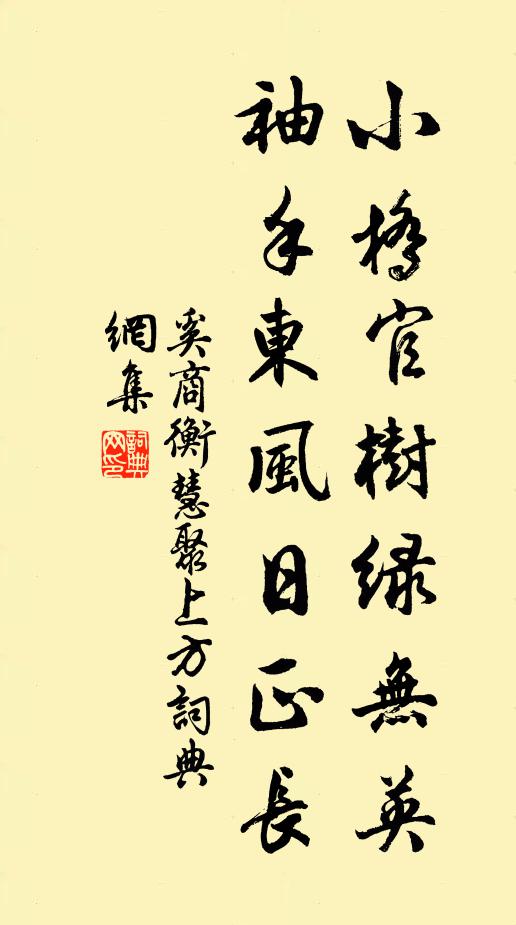 小橋官樹緑無英
袖手東風日正長
奚商衡慧聚上方詞典
網集
詞典
网印